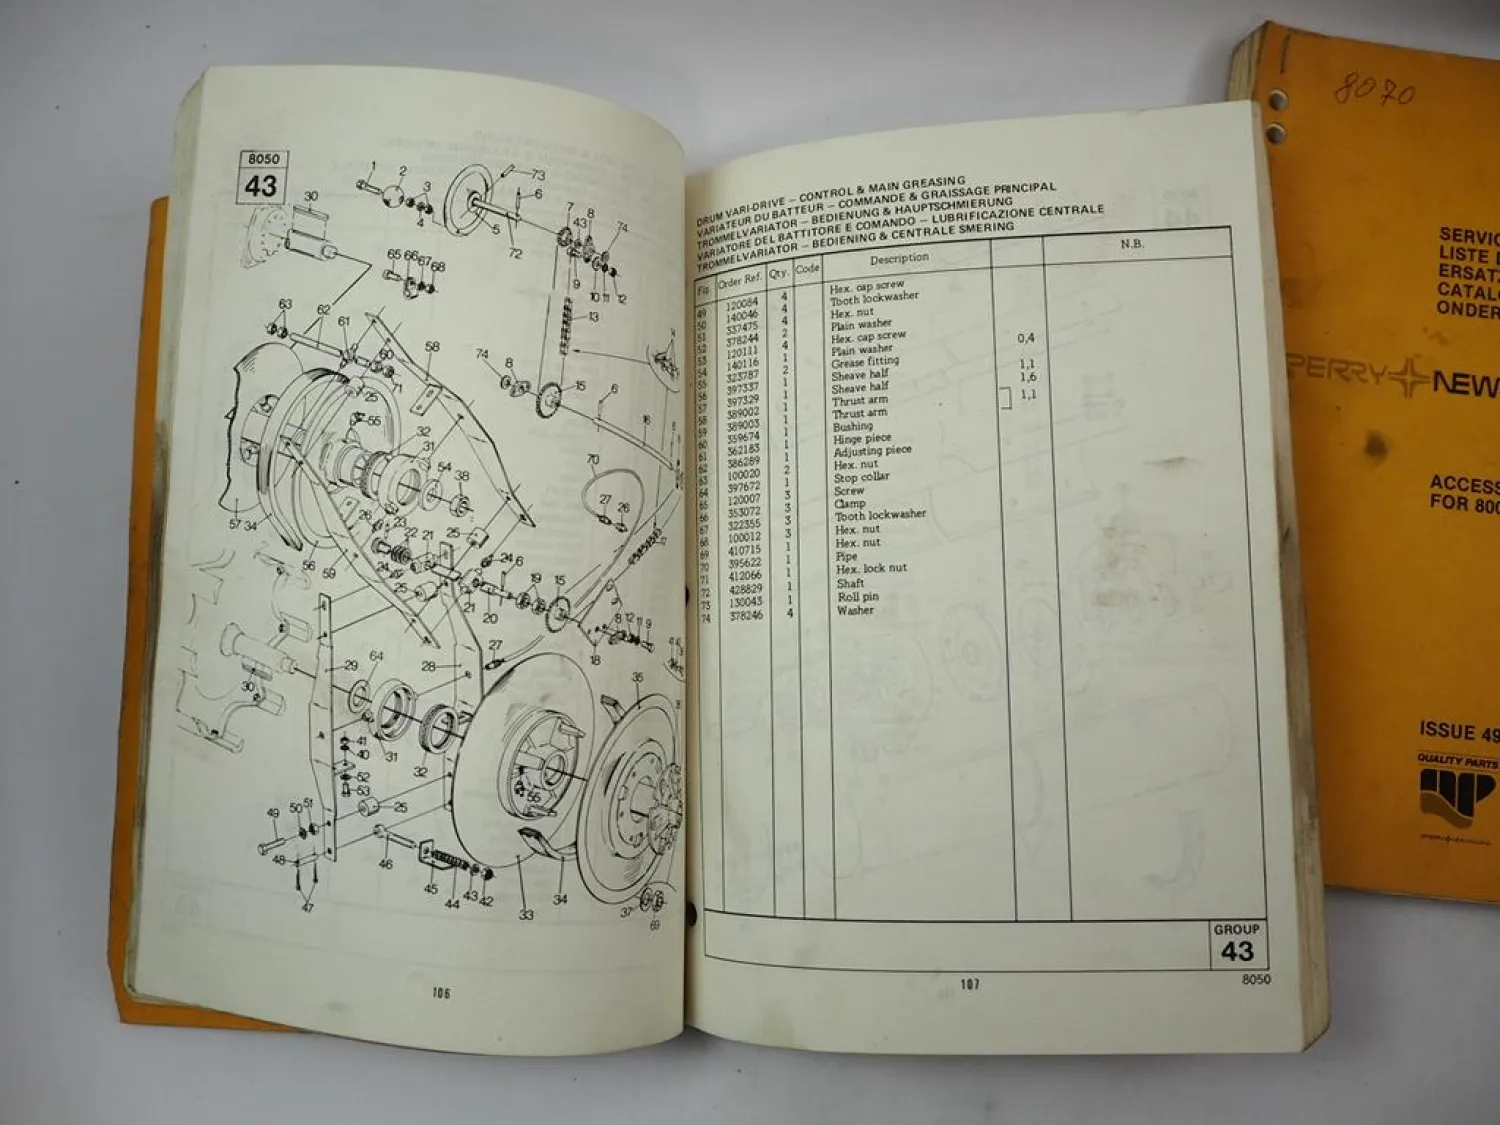 8050
43
1
2
3
4
73
6
5
72
7
43
8
74
9
10
11
12
13
30
65
66
67
68
63
62
61
60
71
58
74
8
15
6
16
25
55
32
31
54
38
70
27
26
57
34
56
59
26
23
22
21
25
24
24
25
6
19
15
20
21
27
8
12
11
9
18
29
64
28
30
31
32
41
40
52
53
35
55
49
50
51
25
48
46
47
45
44
43
42
33
34
37
69
106
DRUM VARI-DRIVE – CONTROL & MAIN GREASING
VARIATEUR DU BATTEUR – COMMANDE & GRAISSAGE PRINCIPAL
TROMMELVARIATOR – BEDIENUNG & HAUPTSCHMIERUNG
VARIATORE DEL BATTITORE E COMANDO – LUBRIFICAZIONE CENTRALE
TROMMELVARIATOR – BEDIENING & CENTRALE SMERING
Fig. Order Ref. Qty. Code Description N.B.
49 120084 4 Hex. cap screw
50 140046 4 Tooth lockwasher
51 337475 4 Hex. nut
52 378244 2 Plain washer
53 120111 4 Hex. cap screw
54 140116 1 Plain washer 0,4
55 323787 2 Grease fitting
56 397337 1 Sheave half 1,1
57 397329 1 Sheave half 1,6
58 389002 1 Thrust arm 1,1
59 389003 1 Thrust arm
60 359674 1 Bushing
61 362183 1 Hinge piece
62 386289 1 Adjusting piece
63 100020 2 Hex. nut
64 397672 1 Stop collar
65 120007 3 Screw
66 353072 3 Clamp
67 322355 3 Tooth lockwasher
68 100012 3 Hex. nut
69 410715 1 Hex. nut
70 395622 1 Pipe
71 412066 1 Hex. lock nut
72 428829 1 Shaft
73 130043 1 Roll pin
74 378246 4 Washer
GROUP
43
107
8050
8070
SERVIC
LISTE
ERSAT
CATAL
ONDER
PERRY NEW
ACCESS
FOR 800
ISSUE 49
QUALITY PARTS